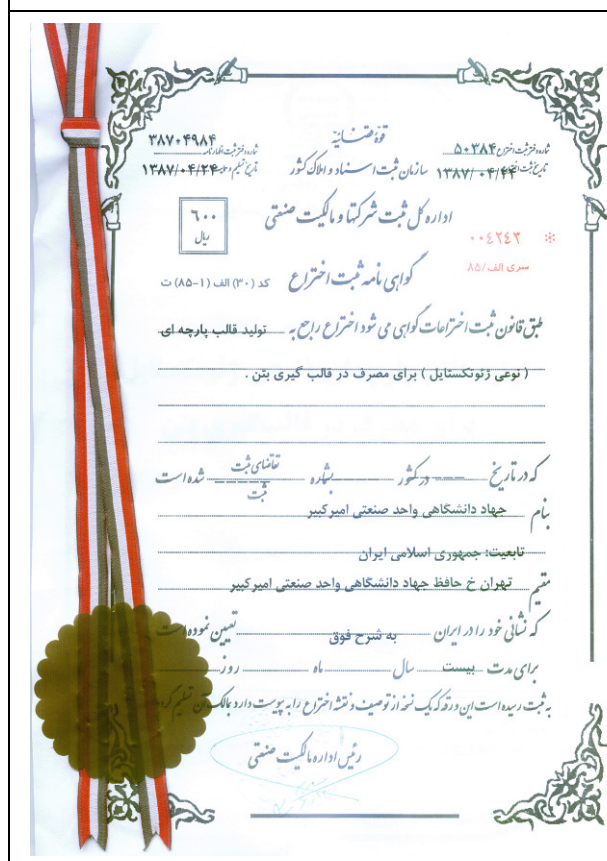 قوه قضائیه
شماره دفتر ثبت اختراع ۵۰۳۸۴
شماره دفتر ثبت اظهارنامه ۳۸۷۰۴۹۸۴
سازمان ثبت اسناد و املاک کشور
تاریخ ثبت اختراع ۱۳۸۷/۰۴/۲۴
تاریخ تسلیم ۱۳۸۷/۰۴/۲۴
اداره کل ثبت شرکتها و مالکیت صنعتی
۶۰۰
ریال
۰۰٤٢٤٢
سری الف/۸۵
گواهی نامه ثبت اختراع
کد (۳۰) الف (۱-۸۵) ت
طبق قانون ثبت اختراعات گواهی می شود اختراع راجع به تولید قالب پارچه ای
( نوعی ژئوتکستایل ) برای مصرف در قالب گیری بتن .
که در تاریخ --- در کشور بشماره تقاضای ثبت شده است
ثبت
بنام جهاد دانشگاهی واحد صنعتی امیرکبیر
تابعیت: جمهوری اسلامی ایران
مقیم تهران خ حافظ جهاد دانشگاهی واحد صنعتی امیرکبیر
که نشانی خود را در ایران به شرح فوق تعیین نموده است
برای مدت بیست سال ماه روز
به ثبت رسیده است این ورقه که یک نسخه از توصیف و نقشه اختراع را به پیوست دارد بمالک آن تسلیم گردید
رئیس اداره مالکیت صنعتی